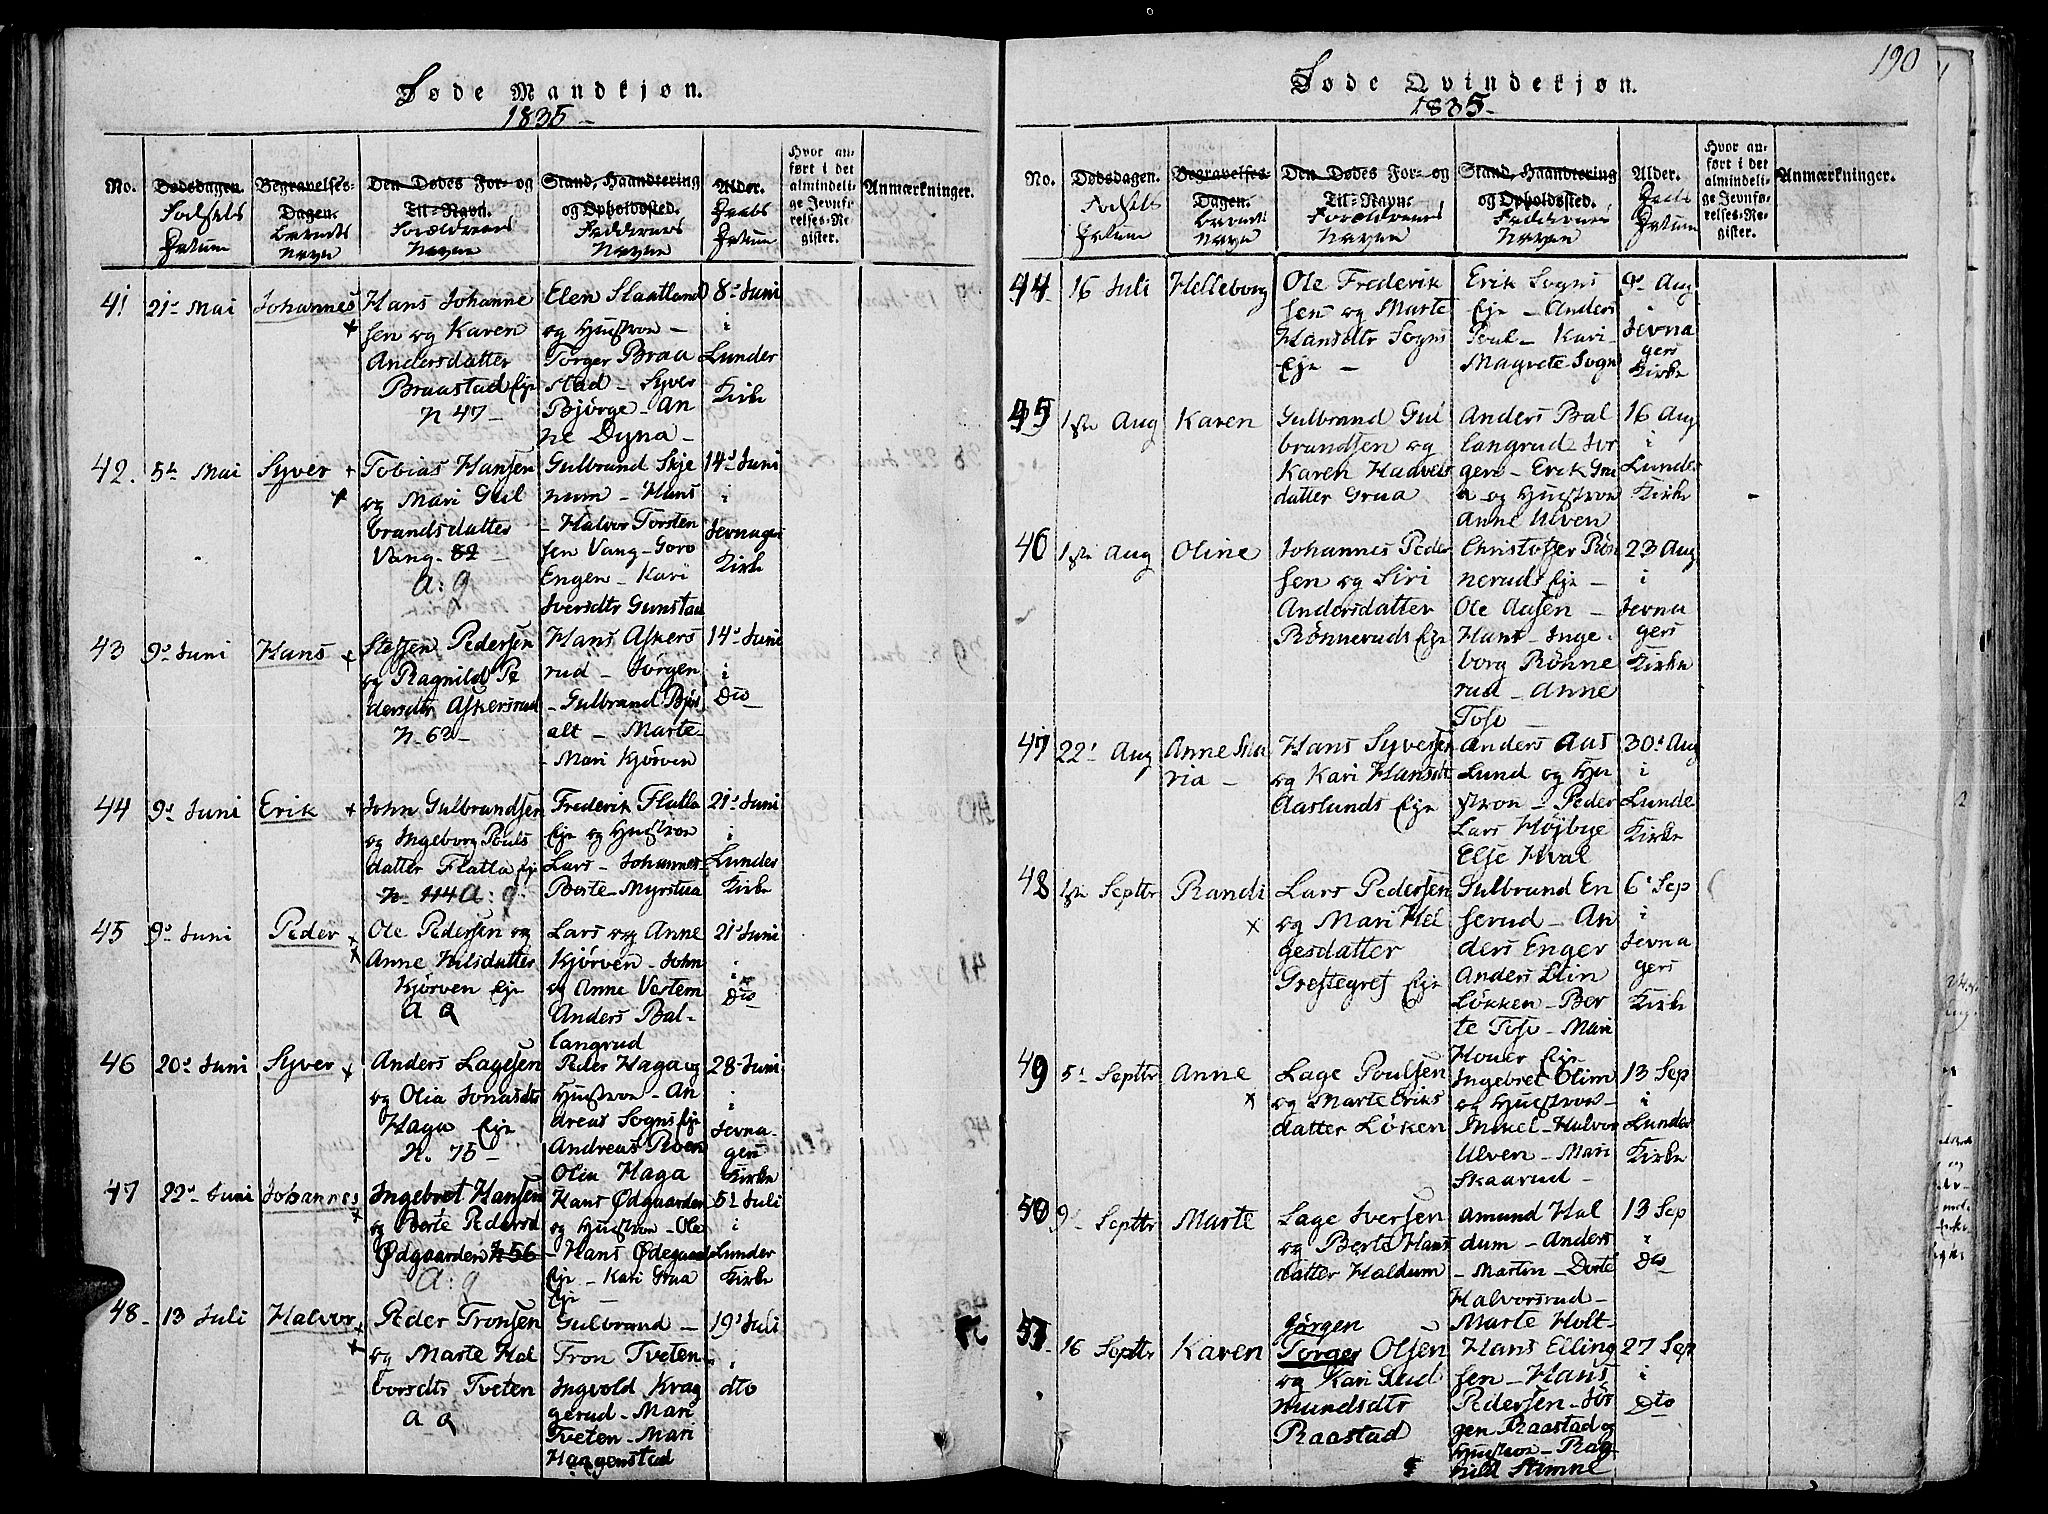 Føde Mandkjøn.
1835 -
No.
Dødsdagen.
Fødsels
Datum
Begravelses-
Dagen.
Barnets
Navn
Den Dødes For- og
Til-Navn.
Forældrenes
Navne
Stand, Haandtering
og Opholdsted.
Faddernes
Navne
Alder.
Daabs
Datum
Hvor an-
ført i det
almindeli-
ge Jevnfø-
relses-Re-
gister.
Anmærkninger.
41
21d Mai
Johannes
Hans Johanne
sen og Karen
Andersdatter
Braastad Eje
N 47 -
Elen Slaatland
og Hustroe -
Torger Braa
stad - Syver
Bjørge - An
ne Dyna -
8d Juni
i
Lunder
Kirke
42.
5te Mai
Syver
Tobias Hansen
og Mari Gul
brandsdatter
Vang. 82
a: g
Gulbrand Skje
num - Hans
- Halvor Torsten
sen Vang - Goro
Engen - Kari
Iversdtr Gunstad
14d Juni
i
Jevnager
Kirke
43
9d Juni
Hans
Steffen Pedersen
og Ragnild Pe
dersdtr Askersrud
N. 62 -
Hans Askers
rud - Jørgen
- Gulbrand Bjøs
alt - Marte
- Mari Kjörven
14d Juni
i
Dto
44
9d Juni
Erik
John Gulbrandsen
og Ingeborg Pouls
datter Flatla Eje
N. 114 A: g:
Frederik Flatla
Eje og Hustroe
Lars - Johannes
Berte - Myrstua
21d Juni
i
Lundes
Kirke
45
9d Juni
Peder
Ole Pedersen og
Anne Nilsdatter
Kjørven Eje
a g
Lars og Anne
Kjörven - John
og Anne Vestern
Anders Bal-
langrud
21d Juni
i
Dto
46
20d Juni
Syver
Anders Lagesen
og Olia Jonasdtr
Haga Eje
N. 75 -
Peder Haga og
Hustroe - An
dreas Sogns Eje
Andreas Roen
Olia Haga
28 Juni
i
Jevna-
gers
Kirke
47
22d Juni
Johannes
Ingebret Hansen
og Berte Pedersd
Ødgaarden N 56
a: g
Hans Ødgaarden
og Hustroe - Ole
- Hans Ødegaard
Eje - Kari Grua
Eje -
5d Juli
i
Lunder
Kirke
48 -
13 Juli
Halvor
Peder Tronsen
og Marte Hal
vorsdtr Tveten
a g
Gulbrand -
Tron Tveten -
Ingvold Krag
gerud - Mari
Tveten - Mari
Haagenstad
19d Juli
i
dto
190
Føde Qvindekjøn.
1835 -
No.
Dødsdagen.
Fødsels
Datum
Begravelses-
Dagen.
Barnets
Navn
Den Dødes For- og
Til-Navn.
Forældrenes
Navne
Stand, Haandtering
og Opholdsted.
Faddernes
Navne
Alder.
Daabs
Datum
Hvor an-
ført i det
almindeli-
ge Jevnfø-
relses-Re-
gister.
Anmærkninger.
44
16 Juli
Helleborg
Ole Frederik
sen og Marte
Hansdtr Sogns
Eje -
Erik Sogns
Eje - Anders
Poul - Kari -
Magrete Sogn
9d Aug
i
Jevna
gers
Kirke
45
1ste Aug
Karen
Gulbrand Gul
brandsen og
Karen Hadvels
datter Grua
Anders Bal
langrud Jør
gen - Erik Gru
a og Hustroe
Anne Ulven
16 Aug
i
Lunder
Kirke
46
1ste Aug
Oline
Johannes Peder
sen og Siri
Andersdatter
Rönneruds Eje
Christofer Rön
neruds Eje -
Ole Aasen -
Hans - Inge -
borg Rönne
rud - Anne
Toso
23 Aug
i
Jevna
gers
Kirke
47
22d Aug
Anne Ma
ria -
Hans Syversen
og Kari Hansdt
Aaslunds Eje
Anders Aas
Lund og Hu
stroe - Peder
Lars Højbye
Else Hval
30d Aug
i
Lunde
Kirke
48
1ste Septbr
Randi
Lars Pedersen
og Mari Hel
gesdatter
Greftegref Eje
Gulbrand En
serud - An
ders Enger
Anders Lin
Løkken - Ber
te Toso - Mari
Hover Eje
6d Sep
i
Jevna
gers
Kirke
49
5d Septbr
Anne
Lage Poulsen
og Marte Eriks
datter Løken
Ingebret Olim
og Hustroe -
Mikel - Halvor
Ulven - Mari
Skaarud -
13 Sep
i
Lunder
Kirke
50
9d Septbr
Marte
Lage Iversen
og Berte Hans
datter Haldum
Amund Hal
dum - Anders
- Marten - Dorte
Halvorsrud -
Marte Holt -
13 Sep
i
Dto
51
16 Septbr
Karen
Jørgen
Torger Olsen
og Kari Gud
mundsdtr
Raastad
Hans Elling
sen - Hans
Pedersen - Jør
gen Raastad og
Hustroe - Rag
nild Stimne
27 Sep
i
Dto